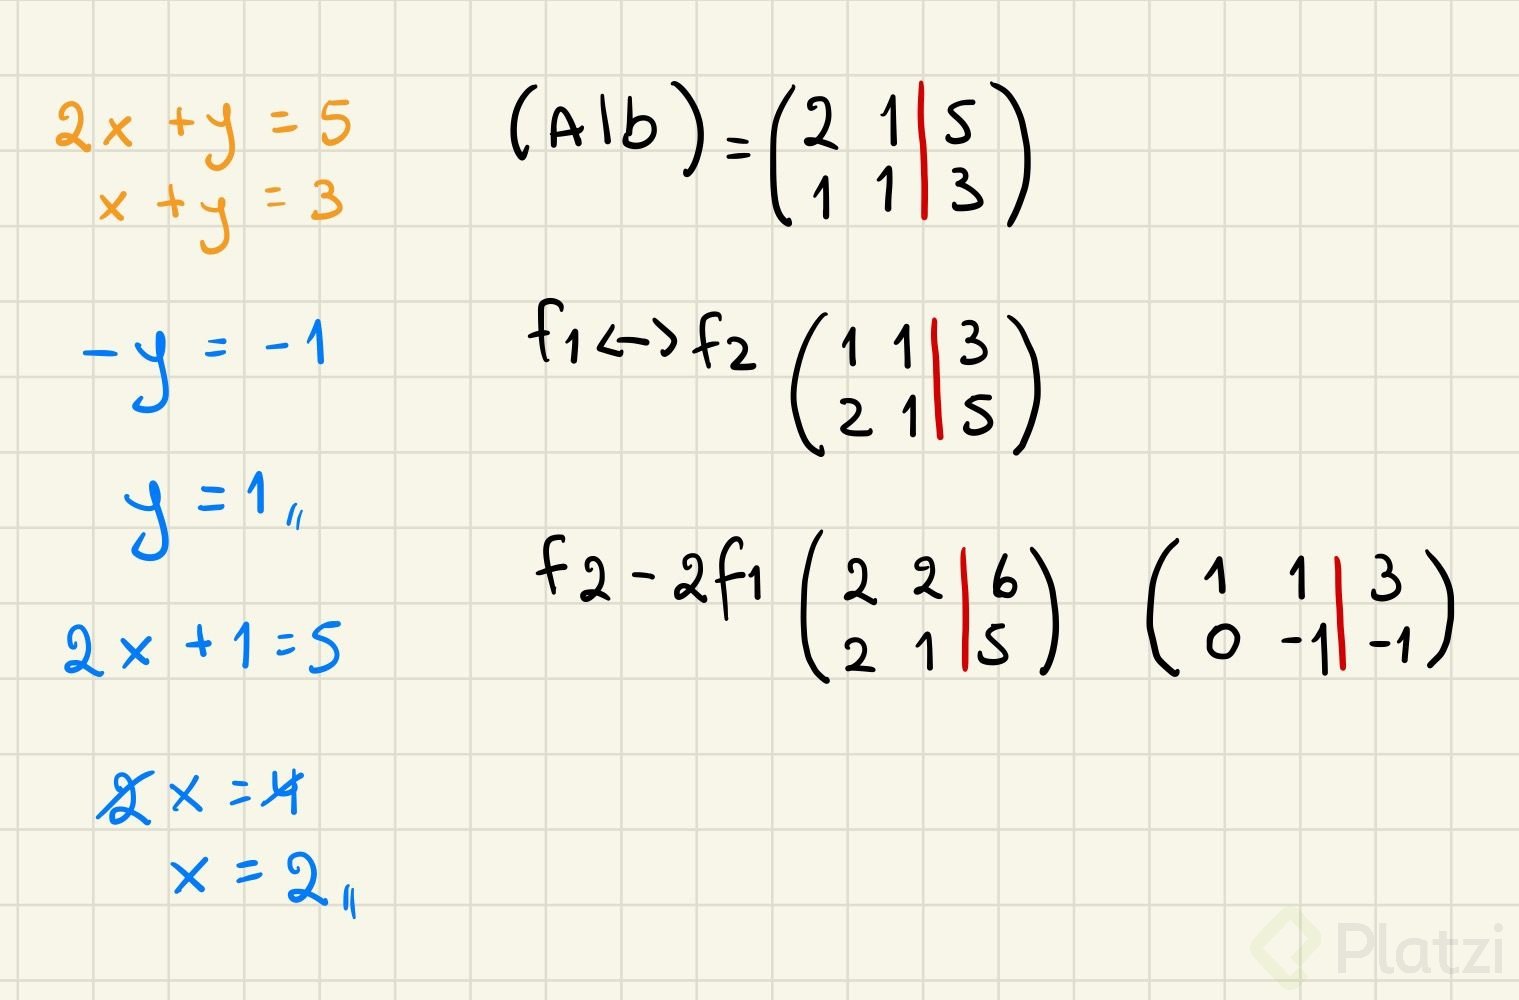 2x + y = 5
x + y = 3
- y = - 1
y = 1 //
2x + 1 = 5
2x = 4
x = 2 //
(A|b) = (2 1 | 5
1 1 | 3)
f1 <-> f2 (1 1 | 3
2 1 | 5)
f2 - 2f1 (2 2 | 6
2 1 | 5)
(1 1 | 3
0 -1 | -1)
Platzi